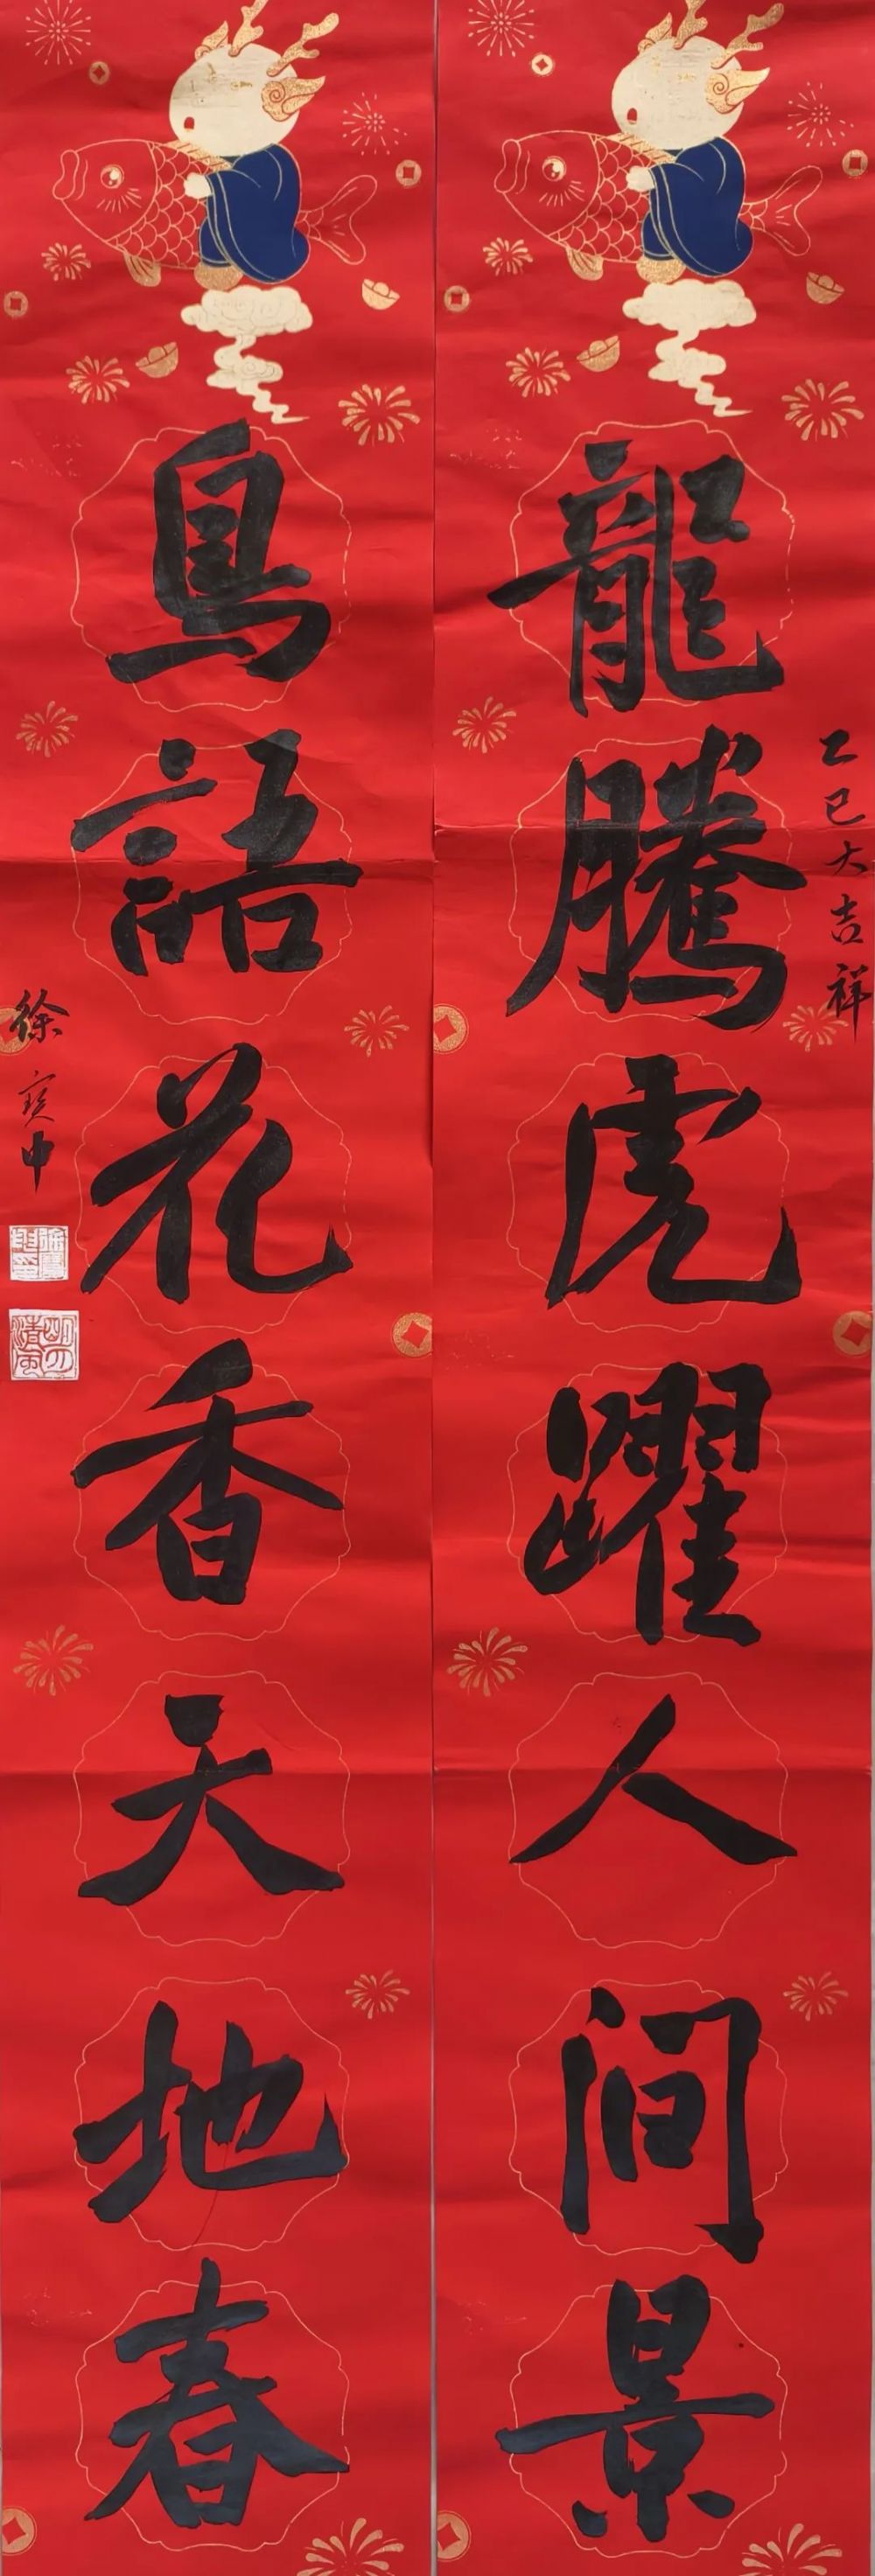 乙巳大吉祥
龍騰虎躍人间景
鳥語花香天地春
徐寶中
明月清風